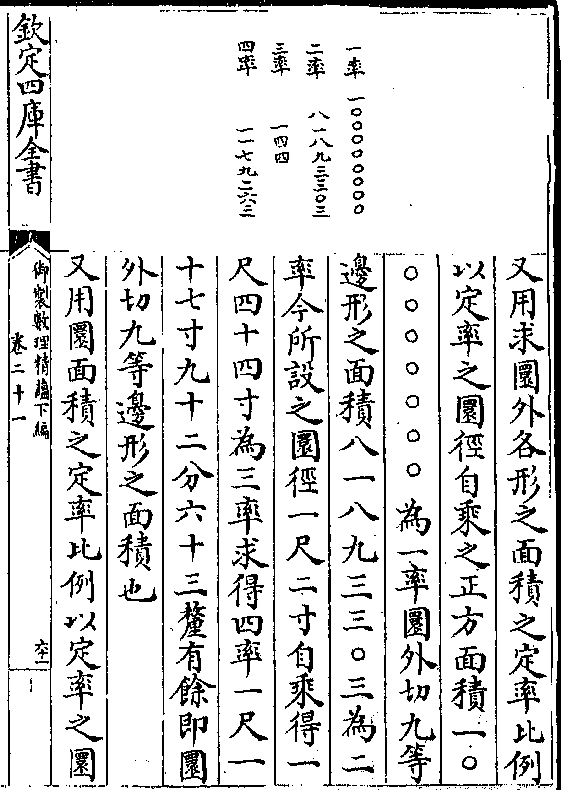 一率 一〇〇〇〇〇〇〇〇
二率 八一八九三三〇三
三率 一四四
四率 一一七九二六三
又用求圜外各形之面積之定率比例
以定率之圜徑自乘之正方面積一〇
〇〇〇〇〇〇〇為一率圜外切九等
邊形之面積八一八九三三〇三為二
率今所設之圜徑一尺二寸自乘得一
尺四十四寸為三率求得四率一尺一
十七寸九十二分六十三釐有餘即圜
外切九等邊形之面積也
又用圜面積之定率比例以定率之圜
欽定四庫全書
御製數理精蘊下編
卷二十一